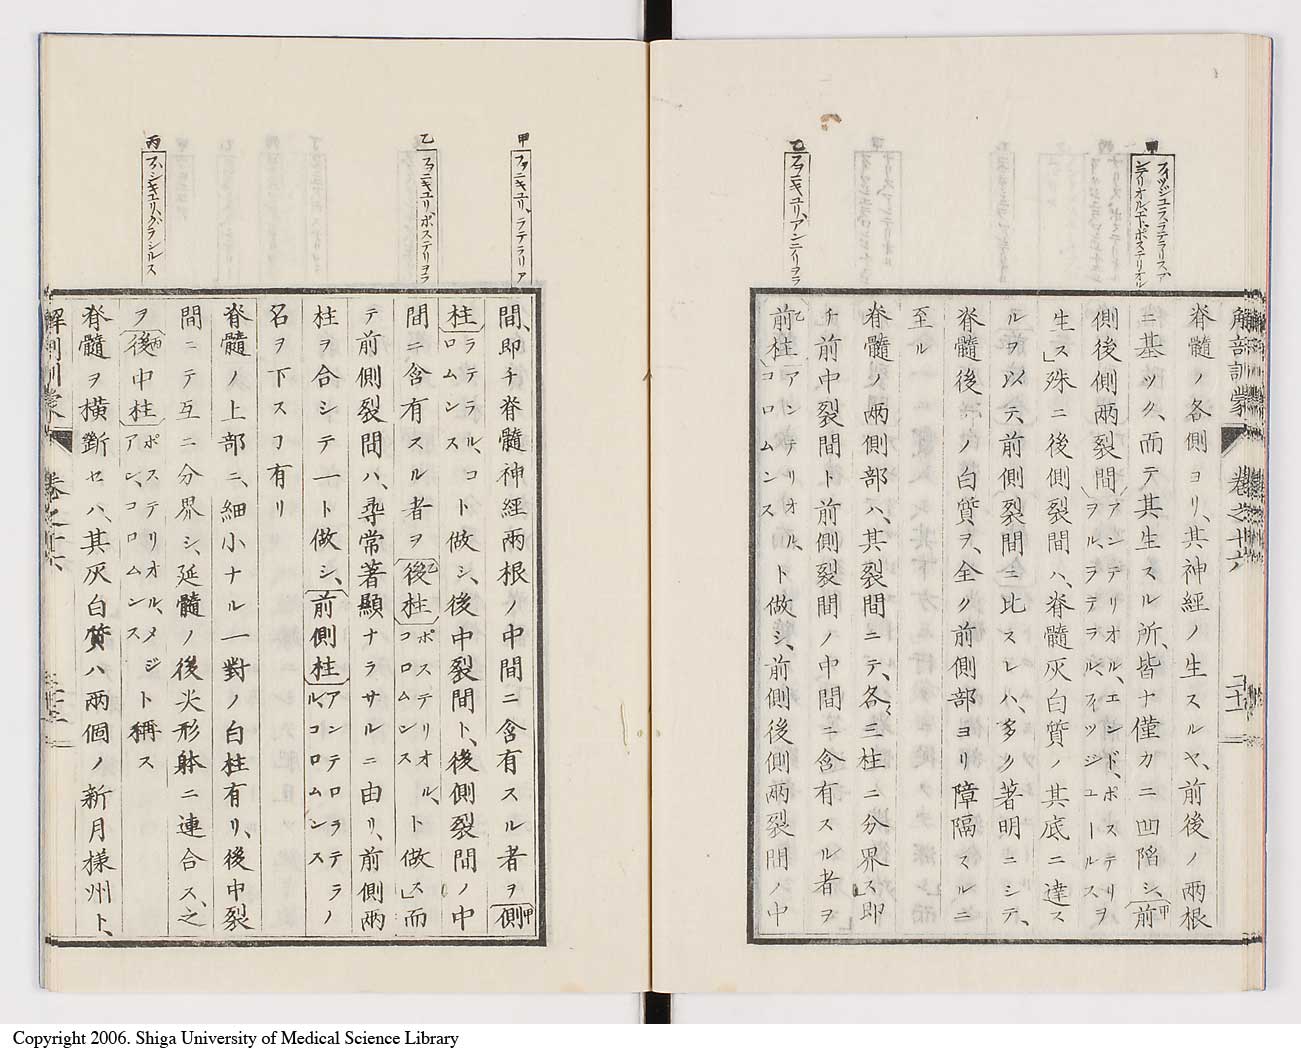 解剖訓蒙
卷之十六
甲
フィッシュラ、ラテラリス、ア
ンテリオル、エト、ポステリオル
乙
フアニキュリ、アンテリヲラ
脊髓ノ各側ヨリ、其神經ノ生スルヤ、前後ノ兩根
ニ基ツク、而テ其生スル所、皆ナ僅カニ凹陷シ、前甲
側後側兩裂間アンテリオル、エンド、ポステリヲヲル、ラテラル、フィッジユールス
生ス」殊ニ後側裂間ハ、脊髓灰白質ノ其底ニ達ス
ルヲ以テ、前側裂間ニ比スレハ、多ク著明ニシテ、
脊髓後□ノ白質ヲ、全ク前側部ヨリ障隔スルニ
至ル
脊髓ノ兩側部ハ、其裂間ニテ、各、三柱ニ分界ス」即
チ前中裂間ト前側裂間ノ中間ニ含有スル者ヲ
前乙柱アンテリオル、コロムンスト做シ、前側後側兩裂間ノ中
甲
フアニキュリ、ラテラリア
乙
フアニキュリ、ポステリヲラ
丙
フハンキュリ、グラシルス
間、即チ脊髓神經兩根ノ中間ニ含有スル者ヲ側甲
柱ラテラル、コロムンスト做シ、後中裂間ト、後側裂間ノ中
間ニ含有スル者ヲ後乙柱ポステリオル、コロムンスト做ス」而
テ前側裂間ハ、尋常著顯ナラサルニ由リ、前側兩
柱ヲ合シテ一ト做シ、前側柱アンテロラテラル、コロムンスノ
名ヲ下スコ有リ
脊髓ノ上部ニ、細小ナル一對ノ白柱有リ、後中裂
間ニテ互ニ分界シ、延髓ノ後尖形躰ニ連合ス、之
ヲ後丙中柱ポステリオル、メジアン、コロムンスト稱ス
脊髓ヲ橫斷セハ、其灰白質ハ兩個ノ新月樣州ト、
解剖訓蒙
卷之十六
Copyright 2006. Shiga University of Medical Science Library